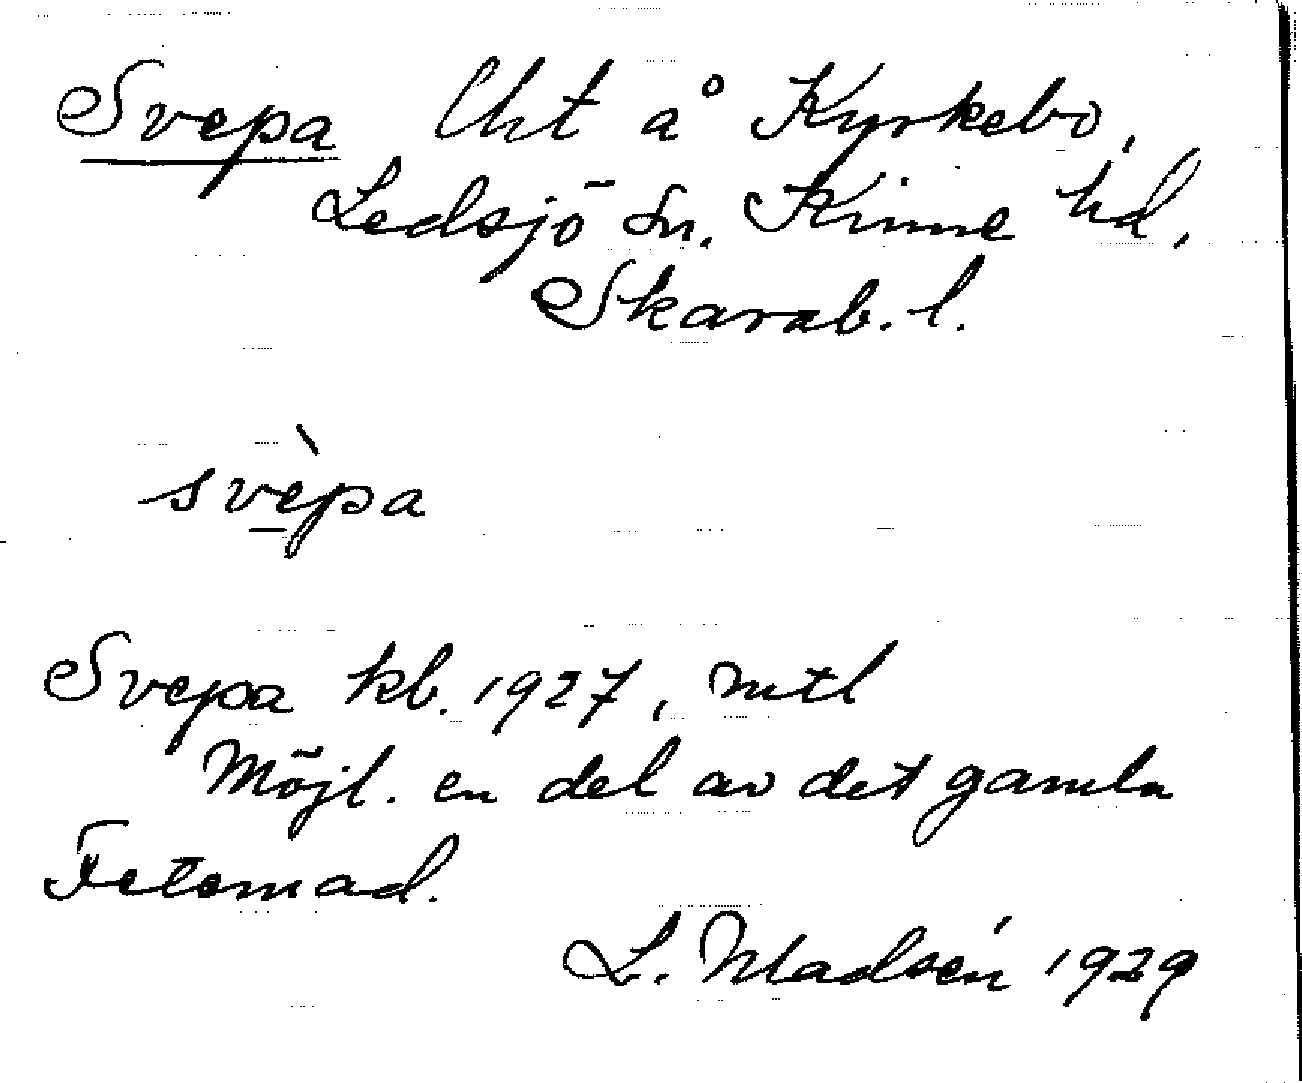 Svepa Lht å Kyrkebo,
Ledsjö sn. Kinne hd,
Skarab. l.
svèpa
Svepa kb. 1927, mtl
Möjl. en del av det gamla
Fetemad.
L. Madsén 1929